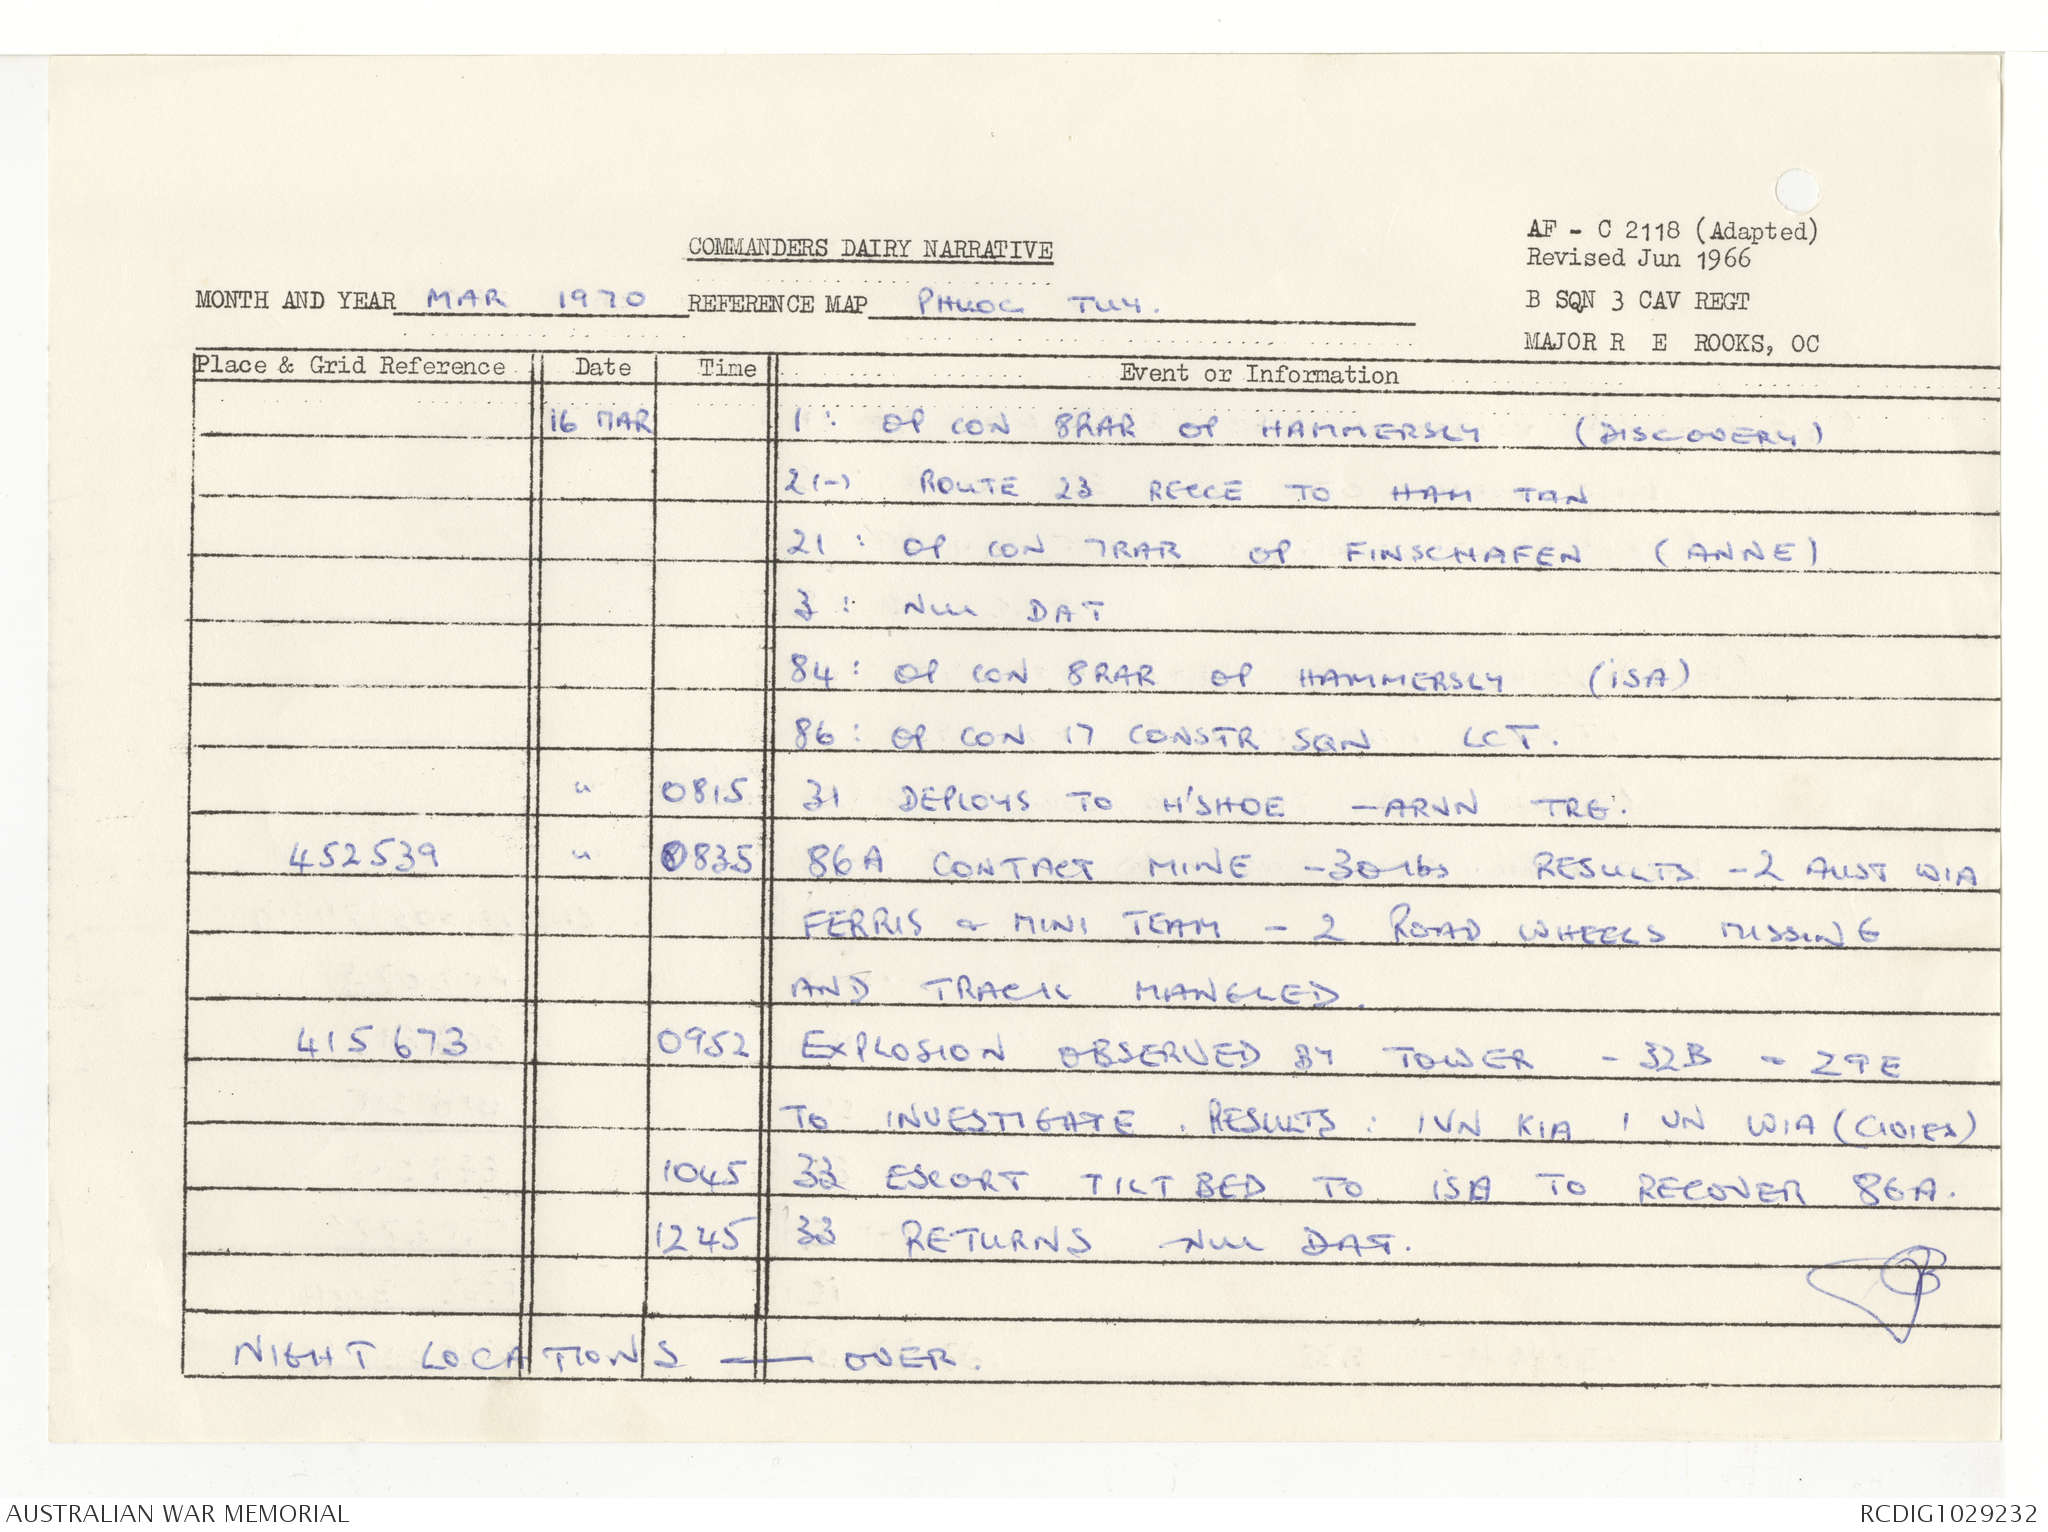 AF - C 2118 (Adapted)
Revised Jun 1966
COMMANDERS DAIRY NARRATIVE
MONTH AND YEAR MAR 1970 REFERENCE MAP PHUOC TUY.
B SQN 3 CAV REGT
MAJOR R E ROOKS, OC
Place & Grid Reference Date Time Event or Information
16 MAR 1: OP CON 8RAR OP HAMMERSLY (DISCOVERY)
2(-) ROUTE 23 RECCE TO HAM TAN
21: OP CON 7RAR OP FINSCHAFEN (ANNE)
3: NUI DAT
84: OP CON 8RAR OP HAMMERSLY (ISA)
86: OP CON 17 CONSTR SQN LCT.
" 0815 31 DEPLOYS TO H'SHOE - ARVN TRG.
452539 " 0835 86A CONTACT MINE - 30lbs RESULTS - 2 AUST WIA
FERRIS & MINI TEAM - 2 ROAD WHEELS MISSING
AND TRACK MANGLED.
415673 0952 EXPLOSION OBSERVED BY TOWER - 32B - ZTE
TO INVESTIGATE. RESULTS: 1 VN KIA 1 VN WIA
1045 33 ESCORT TILT BED TO ISA TO RECOVER 86A.
1245 33 RETURNS NUI DAT.
NIGHT LOCATIONS — OVER.
AUSTRALIAN WAR MEMORIAL RCDIG1029232